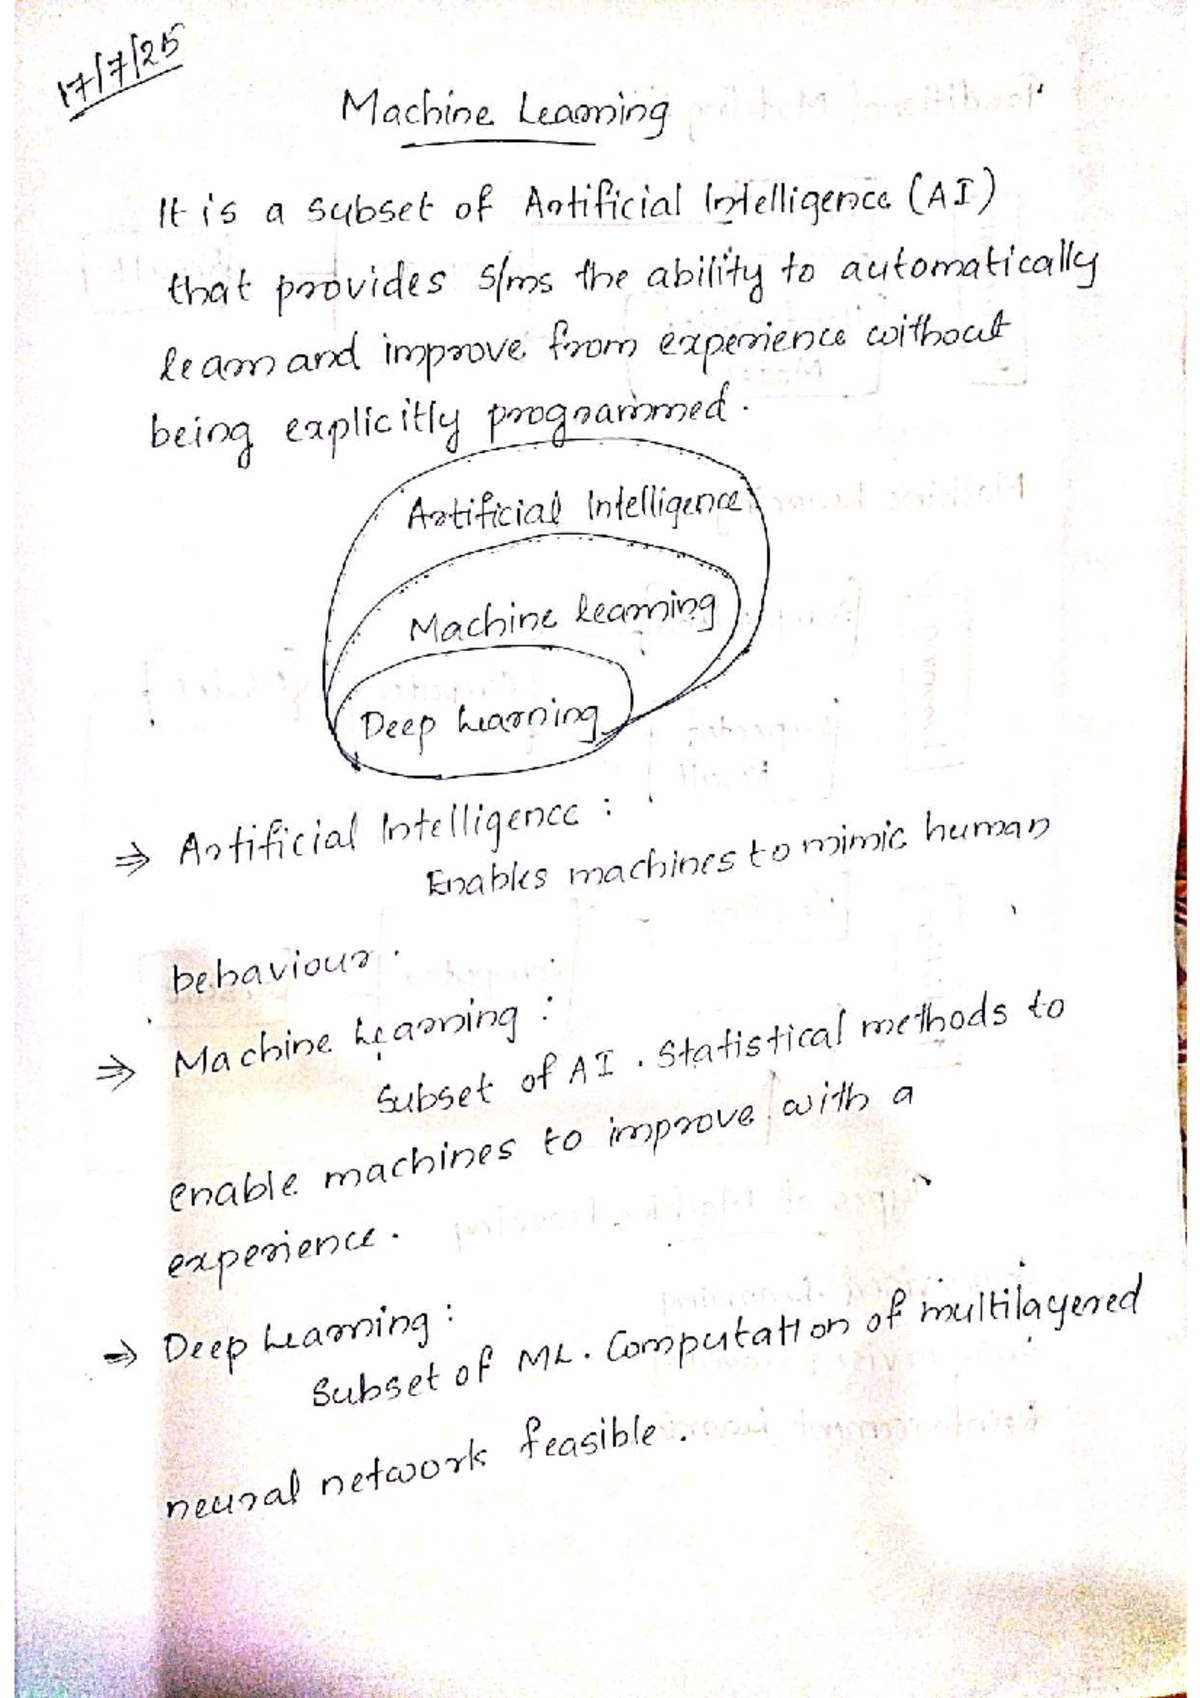 17/7/25
Machine Learning
It is a subset of Artificial Intelligence (AI)
that provides s/ms the ability to automatically
learn and improve from experience without
being explicitly programmed.
Artificial Intelligence
Machine learning
Deep Learning
⇒ Artificial Intelligence :
Enables machines to mimic human
behaviour.
⇒ Machine Learning :
Subset of AI. Statistical methods to
enable machines to improve with a
experience.
⇒ Deep Learning :
Subset of ML. Computation of multilayered
neural network feasible.